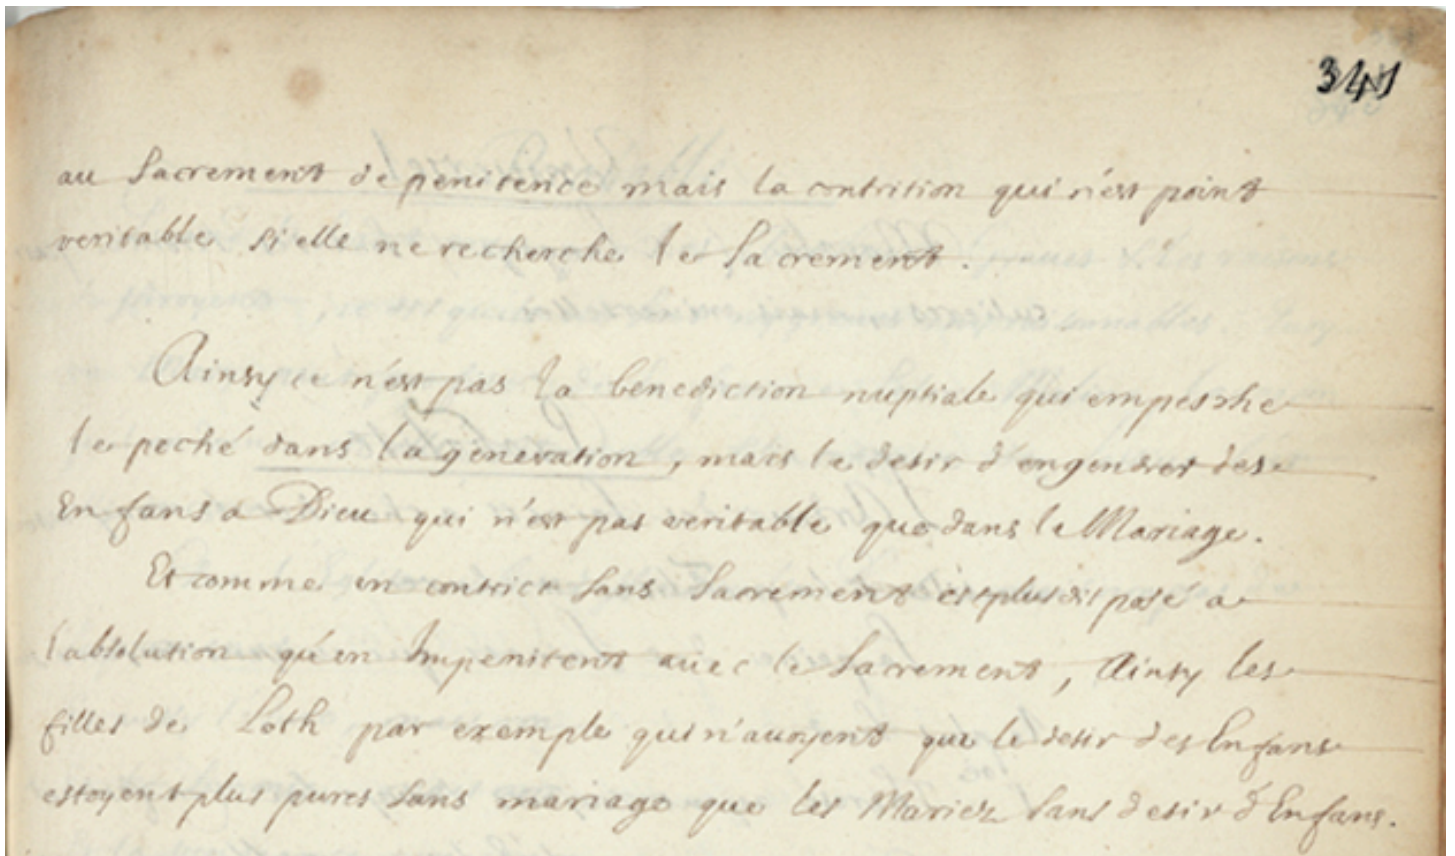 341
au Sacrement de penitence mais la contrition qui n'est point
veritable si elle ne recherche le Sacrement.
Ainsy ce n'est pas la benediction nuptiale qui empesche
le peché dans la generation, mais le desir d'engendrer des
Enfans a Dieu qui n'est pas veritable que dans le Mariage.
Et comme un contrict sans Sacrement est plus disposé a
l'absolution qu'un Impenitent avec le Sacrement, Ainsy les
filles de Loth par exemple qui n'auoyent que le desir des Enfans
estoyent plus pures sans mariage que les Mariez sans desir d'Enfans.